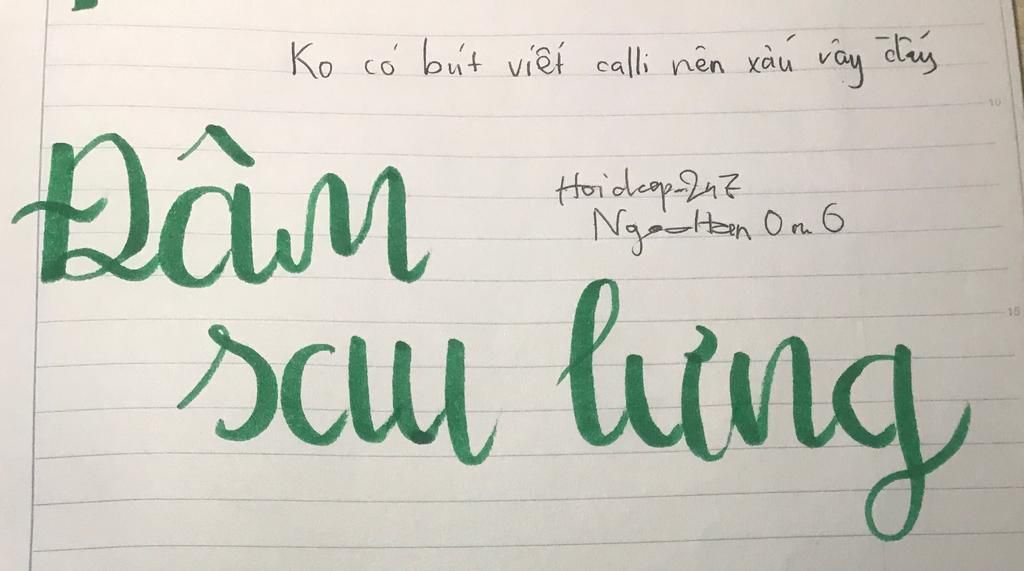 Ko có bút viết calli nên xấú vậy đấy
Đâm
Hoidcop-247
10
sau lưng
15